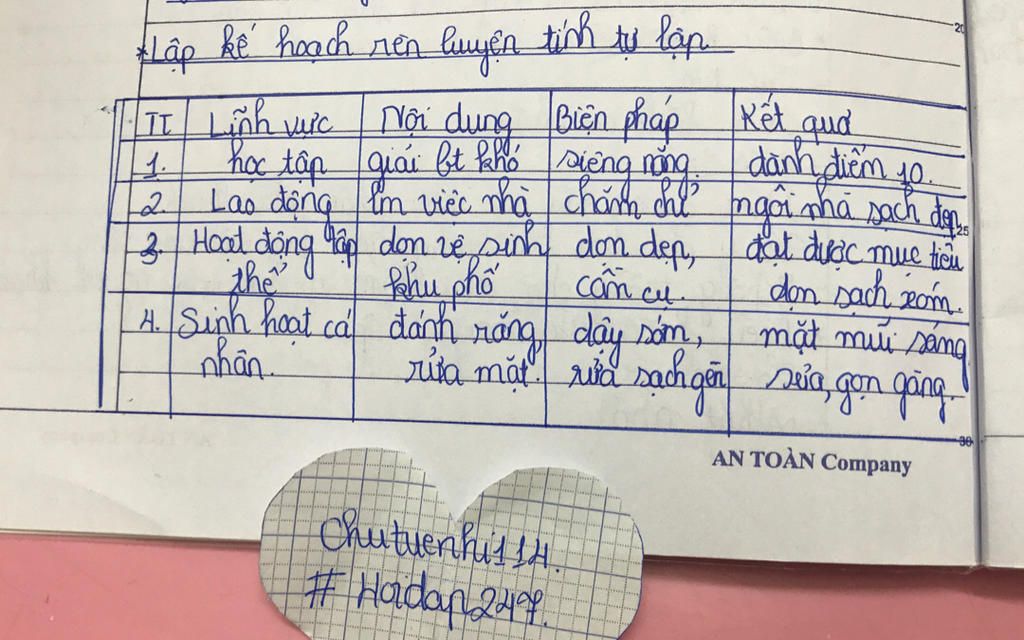 *Lập kế hoạch rèn luyện tính tự lập
TT Lĩnh vực Nội dung Biện pháp Kết quả
1. học tập giải bt khó siêng năng. dành điểm 10.
2. Lao động lm việc nhà chăm chỉ ngôi nhà sạch đẹp
3. Hoạt động tập dọn vệ sinh dọn dẹp, đạt được mục tiêu
thể khu phố cần cù. dọn sạch xóm.
4. Sinh hoạt cá đánh răng, dậy sớm, mặt mũi sáng
nhân. rửa mặt. rửa sạch gên sủa, gọn gàng.
20
25
30
AN TOÀN Company
Chutuenhi114.
# Hoidap247.